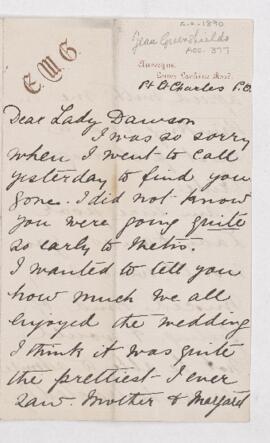 c.c. 1890
Jean Greenshields
Acc. 377
E.M.G.
Pt St Charles P.O.
Dear Lady Dawson
I was so sorry
when I went to call
yesterday to find you
gone. I did not know
you were going quite
so early to Metis.
I wanted to tell you
how much we all
enjoyed the wedding
I think it was quite
the prettiest I ever
saw. Mother & Margaret